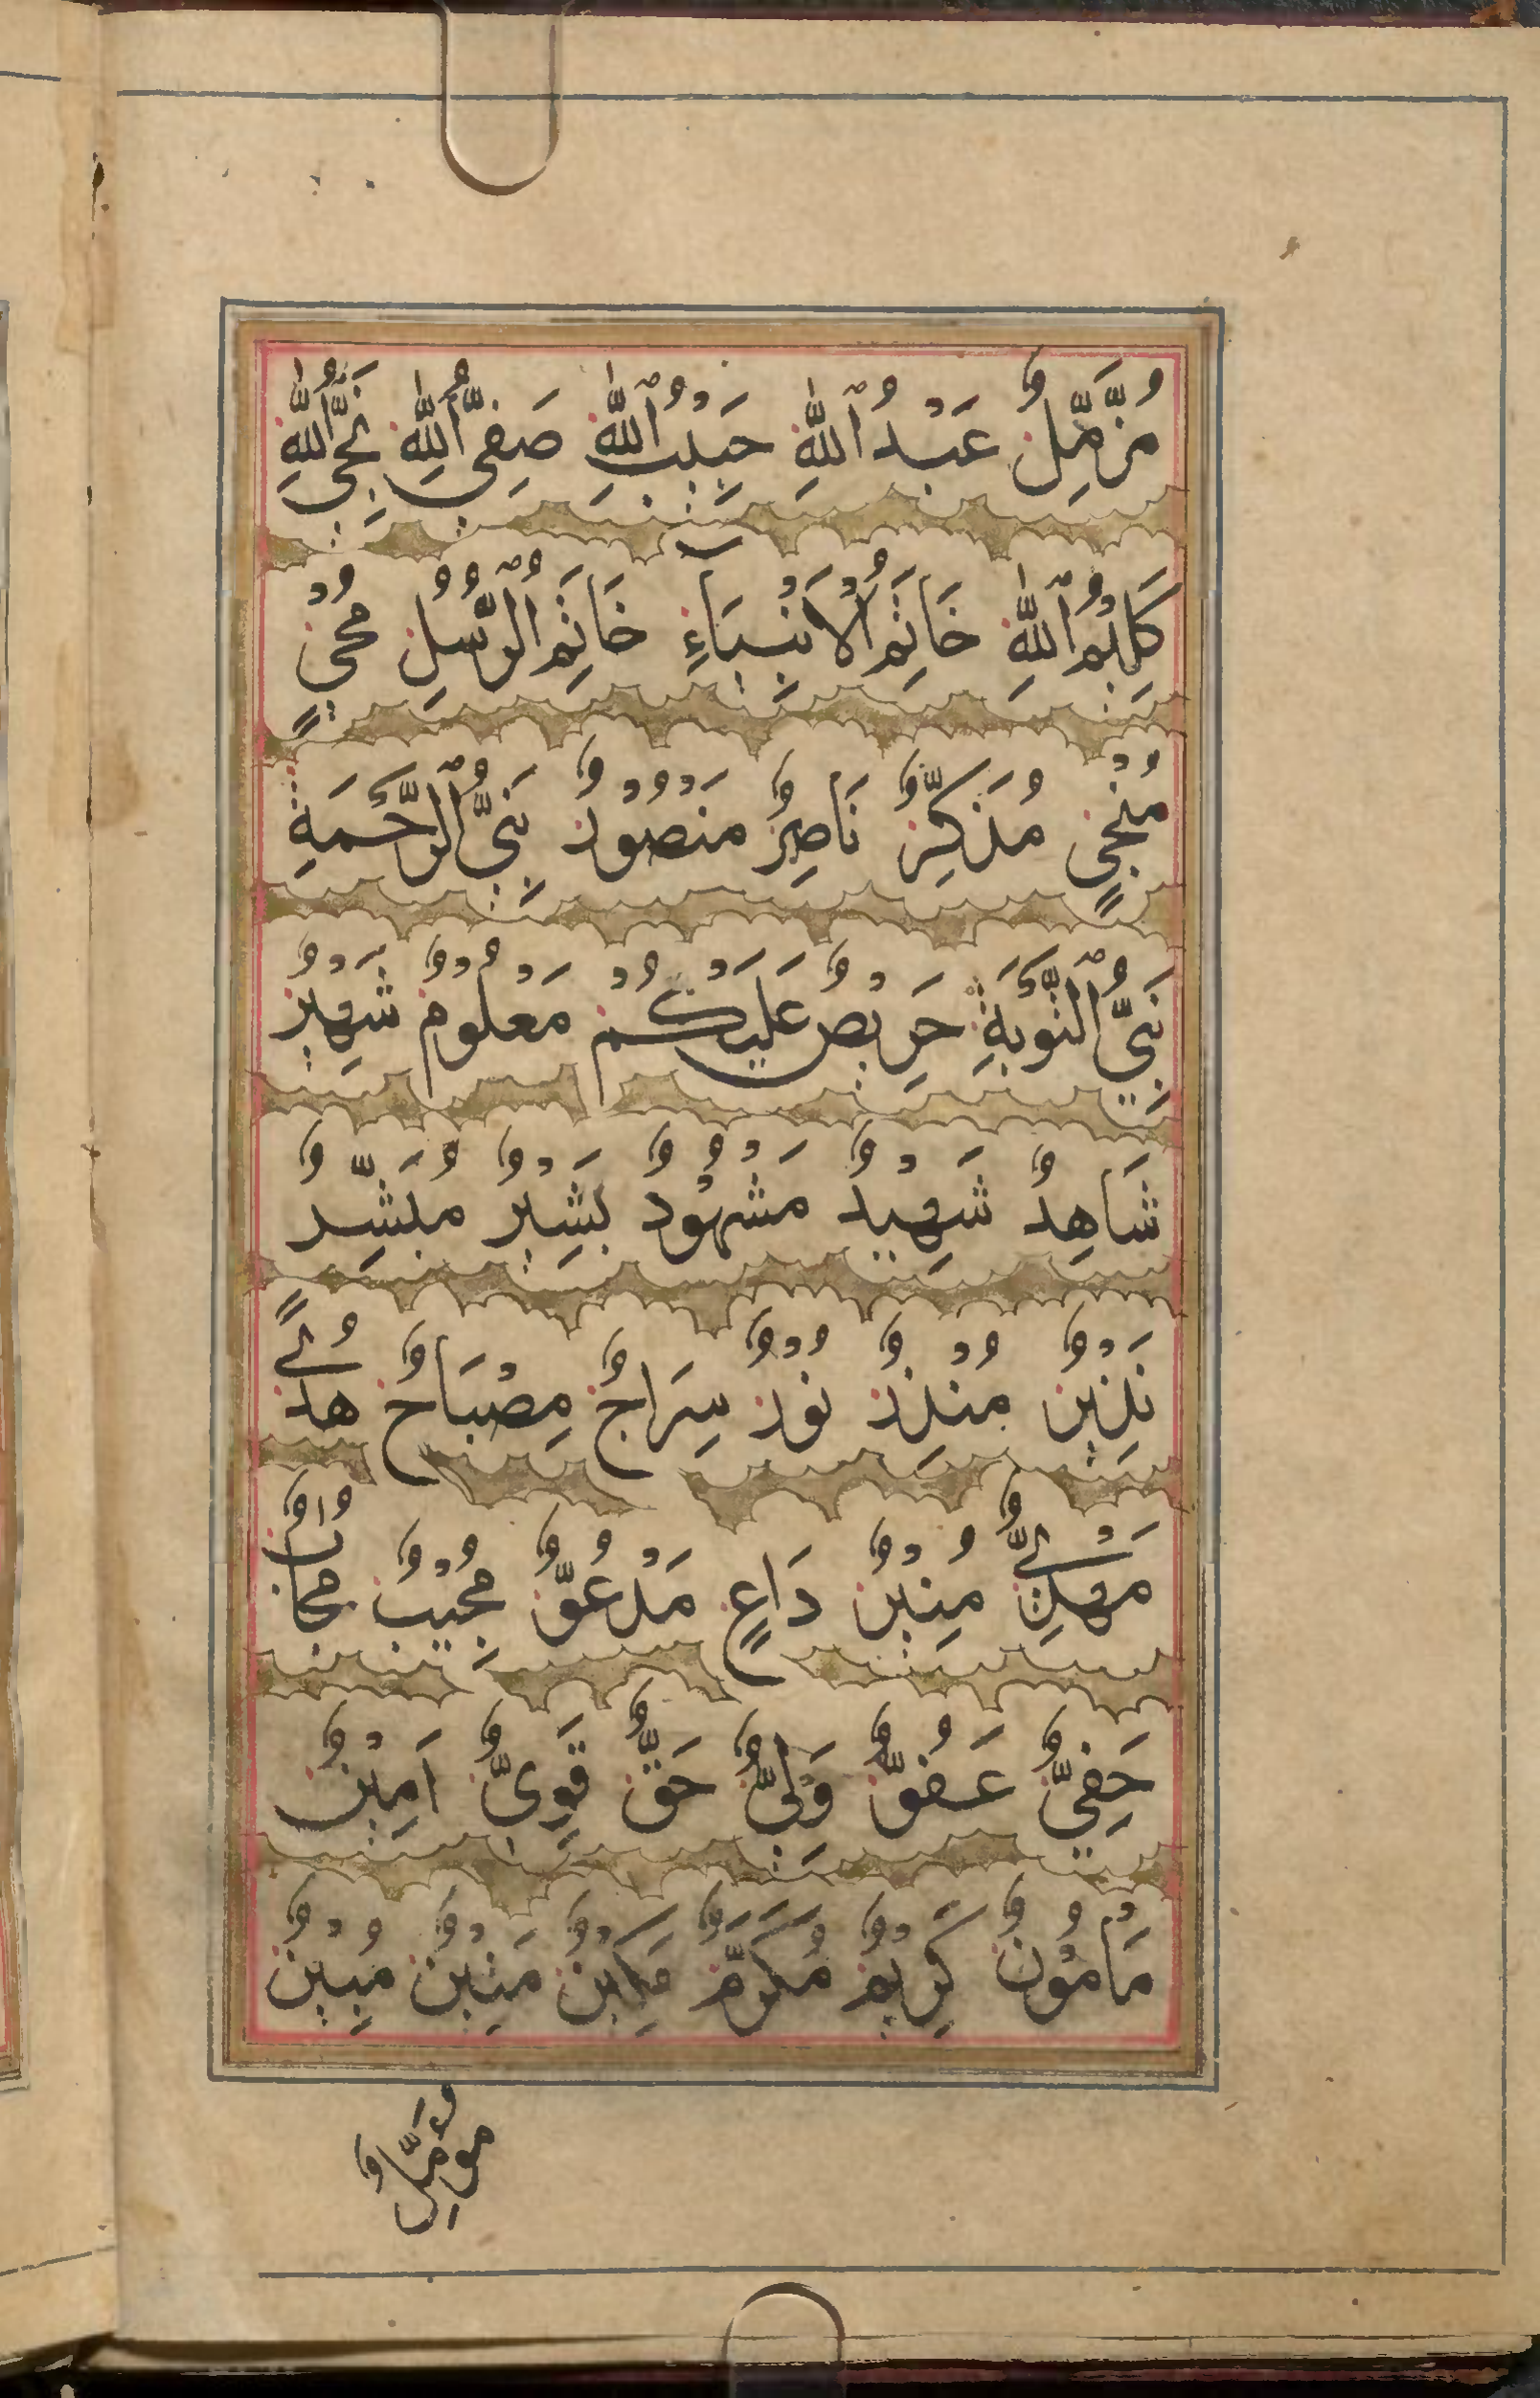 مُزَّمِّلٌ عَبْدُ ٱللّٰهِ حَبِيْبُ ٱللّٰهِ صَفِيُّ ٱللّٰهِ نَجِيُّ ٱللّٰهِ
كَلِيْمُ ٱللّٰهِ خَاتِمُ ٱلْاَنْبِيَآءِ خَاتِمُ ٱلرُّسُلِ مُحْيٍ
مُنْجٍ مُذَكِّرٌ نَاصِرٌ مَنْصُوْرٌ نَبِيُّ ٱلرَّحْمَةِ
نَبِيُّ ٱلتَّوْبَةِ حَرِيْصٌ عَلَيْكُمْ مَعْلُوْمٌ شَهِيْرٌ
شَاهِدٌ شَهِيْدٌ مَشْهُوْدٌ بَشِيْرٌ مُبَشِّرٌ
نَذِيْرٌ مُنْذِرٌ نُوْرٌ سِرَاجٌ مِصْبَاحٌ هُدًى
مَهْدِيٌّ مُنِيْرٌ دَاعٍ مَدْعُوٌّ مُجِيْبٌ مُجَابٌ
حَفِيٌّ عَفُوٌّ وَلِيٌّ حَقٌّ قَوِيٌّ اَمِيْنٌ
مَاْمُوْنٌ كَرِيْمٌ مُكَرَّمٌ مَكِيْنٌ مَتِيْنٌ مُبِيْنٌ
مُؤَمِّلٌ